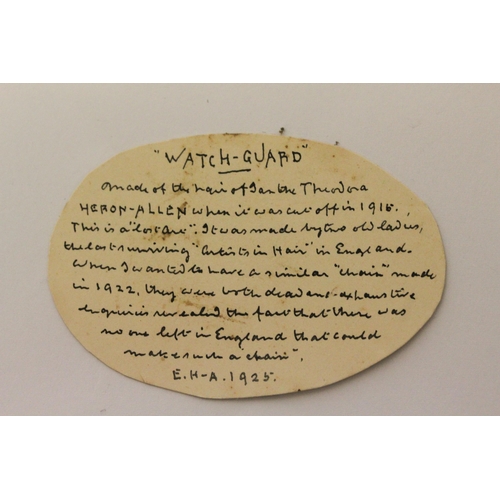 "WATCH-GUARD"
made of the hair of Ianthe Theodora
HERON-ALLEN when it was cut off in 1915.
This is a "lost Art". It was made by two old ladies,
the last surviving "Artists in Hair" in England.
When I wanted to have a similar "chain" made
in 1922, they were both dead and exhaustive
enquiries revealed the fact that there was
no one left in England that could
make such a "chain".
E.H-A. 1925.